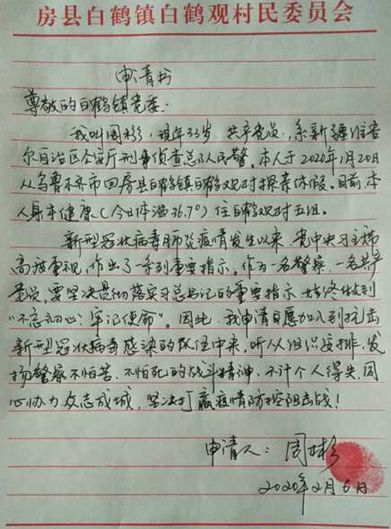 房县白鹤镇白鹤观村民委员会
申请书
尊敬的白鹤镇党委:
我叫周彬,现年33岁,共产党员,系新疆维吾
尔自治区公安厅刑事侦查总队民警。本人于2020年1月20日
从乌鲁木齐市回房县白鹤镇白鹤观村探亲休假。目前本
人身体健康(今日体温36.7°)住白鹤观村五组。
新型冠状病毒肺炎疫情发生以来,党中央习主席
高度重视,作出了一系列重要指示。作为一名警察、一名共产
党员,要坚决贯彻落实习总书记的重要指示,始终做到
“不忘初心、牢记使命”。因此,我申请自愿加入到抗击
新型冠状病毒感染的队伍中来,听从组织安排,发
扬警察不怕苦、不怕死的战斗精神,不计个人得失,同
心协力,众志成城,坚决打赢疫情防控阻击战!
申请人:周彬
2020年2月6日